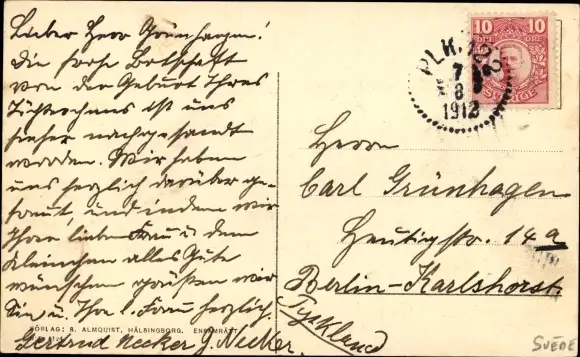 Lieber Herr Grünhagen!
Die frohe Botschaft
von der Geburt Ihres
Töchterchens ist uns
hieher nachgesandt
worden. Wir haben
uns herzlich darüber ge-
freut, und indem wir
Ihrer lieben Frau u. dem
Kleinchen alles Gute
wünschen grüßen wir
Sie u. Ihre l. Frau herzlich.
Gertrud Necker J. Necker.
FÖRLAG: S. ALMQUIST, HÄLSINGBORG. ENSAMRÄTT
10 ÖRE 10 ÖRE
SVERIGE
PLK. 122
7
8
1912
Herrn
Carl Grünhagen
Heutigstr. 14a
Berlin-Karlshorst
Tyskland
SUÈDE